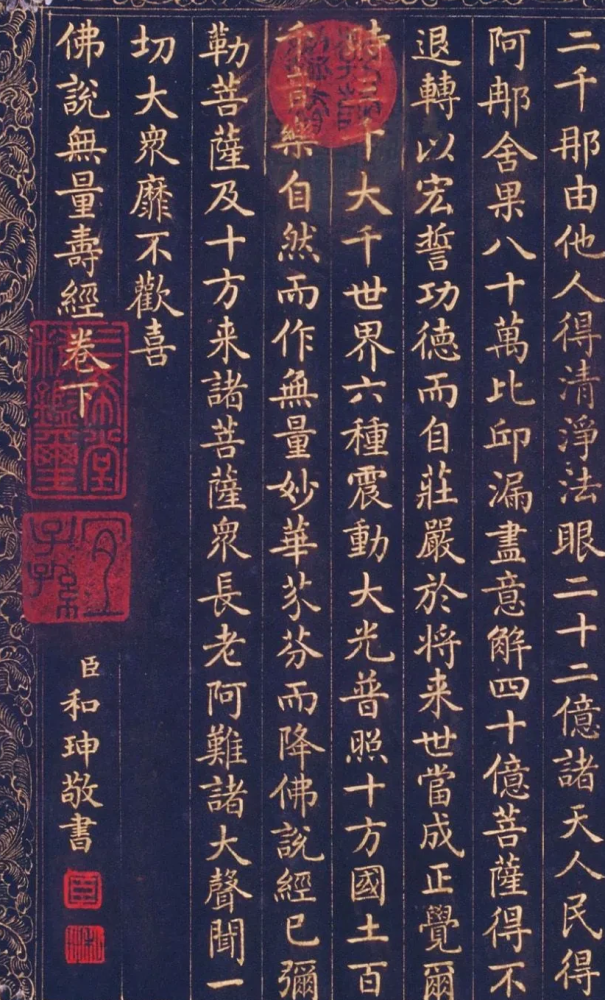 二千那由他人得清淨法眼二十二億諸天人民得
阿那舍果八十萬比邱漏盡意解四十億菩薩得不
退轉以宏誓功德而自莊嚴於将来世當成正覺爾
時三千大千世界六種震動大光普照十方國土百
千音樂自然而作無量妙華芬芬而降佛說經已彌
勒菩薩及十方来諸菩薩衆長老阿難諸大聲聞一
切大衆靡不歡喜
佛說無量壽經卷下
臣和珅敬書